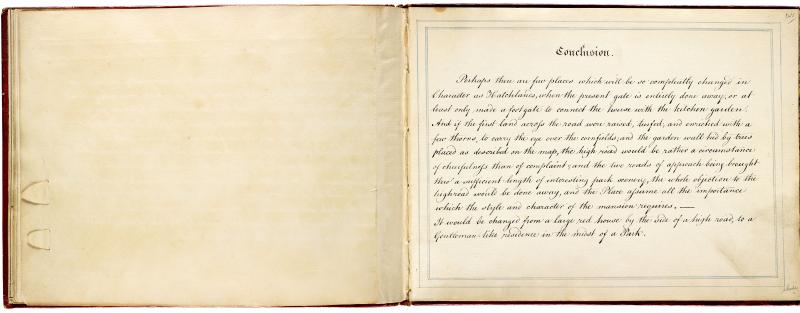 Conclusion.
Perhaps there are few places which will be so compleatly changed in
Character as Hatchlands, when the present gate is entirely done away, or at
least only made a footgate to connect the house with the kitchen garden.
And if the first land across the road were raised, turfed, and enriched with a
few thorns, to carry the eye over the cornfields, and the garden wall hid by trees
placed as described on the map, the high road would be rather a circumstance
of chearfulness than of complaint; and the two roads of approach being brought
thro' a sufficient length of interesting park scenery, the whole objection to the
highroad would be done away, and the Place assume all the importance
which the style and character of the mansion requires. —
It would be changed from a large red house by the side of a high road, to a
Gentleman-like residence in the midst of a Park.